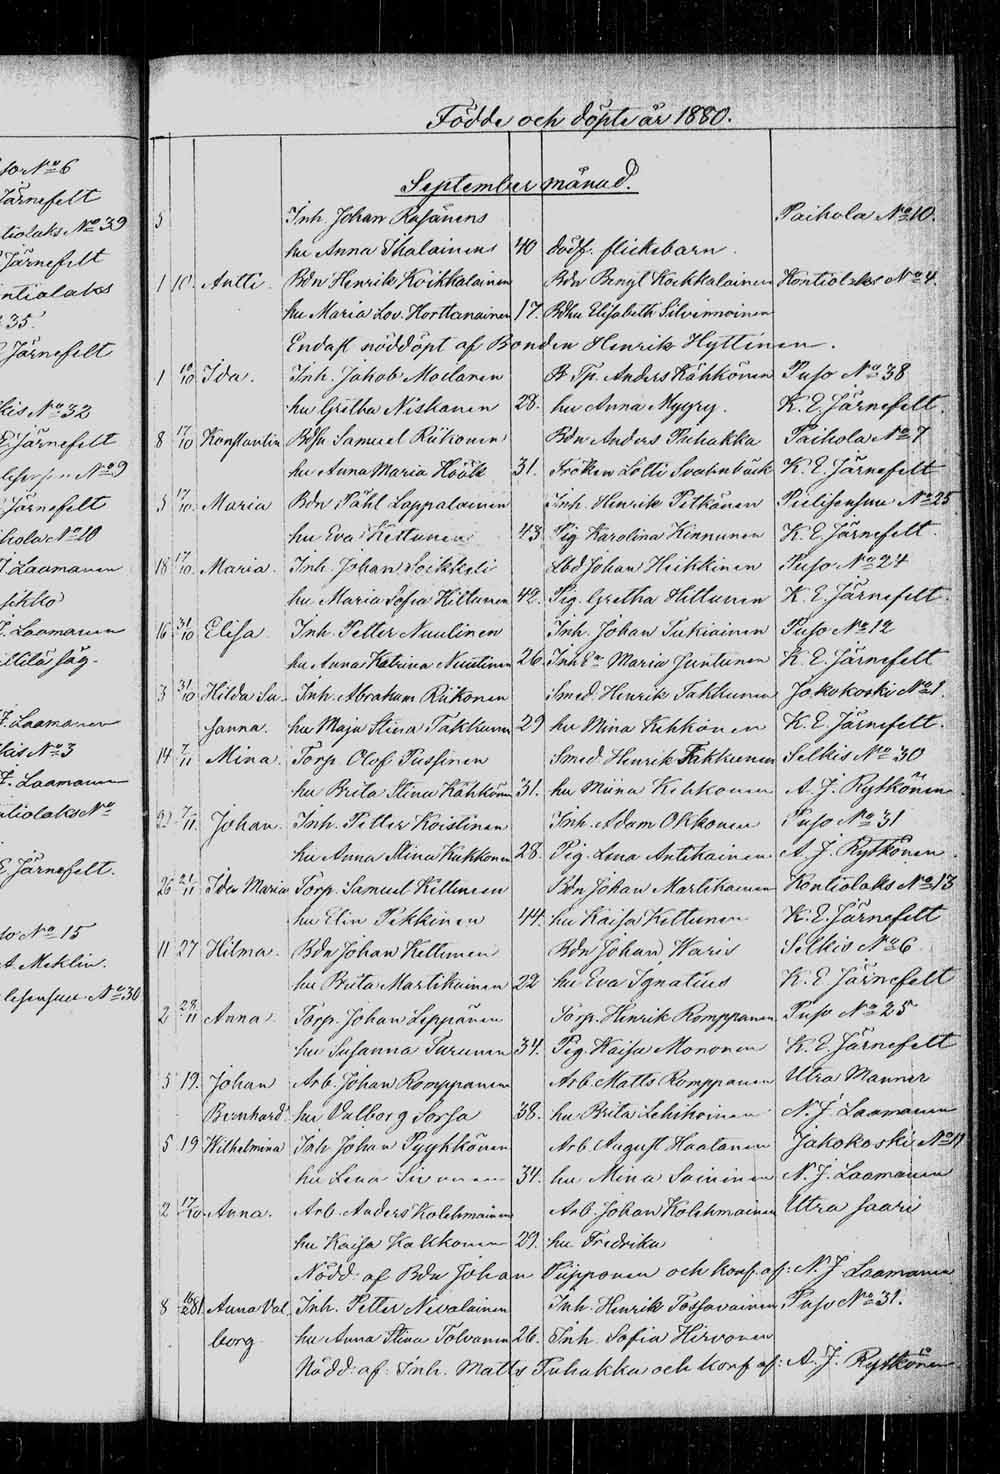 so No 6
Järnefelt
tiolaks No 39
Järnefelt
ntiolaks
35.
Järnefelt
kis No 32
E Järnefelt
No 9
Järnefelt
hola No 10
J. Laamanen
sikko
J. Laamanen
F. Laamanen
kis No 3
F. Laamanen
ntiolaks No
E. Järnefelt.
so No 15
A. Meklin.
No 30
Födde och döpte år 1880.
September månad.
5 Inh. Johan Rasänens Paihola No 10.
hu Anna Ihalainens 40 dödf. flickebarn
1 10. Antti. Bdn Henrik Koikkalainen Bdn Bengt Kockkalainen Kontiolaks No 4
hu Maria Lov. Horttanainen 17. Bdhu Elisabeth Silvennoinen
Endast nöddöpt af Bonden Henrik Hyttinen.
1 10/10 Ida. Inh. Jakob Moilanen B Tp. Anders Kähkönen Puso No 38
hu Gretha Niskanen 28. hu Anna Myyry. K. E. Järnefelt.
8 17/10 Konstantin Samuel Riikonen Bdn Anders Puhakka Paihola No 7
hu Anna Maria Höök 31. Fröken Lotti K. E. Järnefelt
3 17/10. Maria Bdn Påhl Lappalainen Inh. Henrik Pitkänen Pielisensuu No 25
hu Eva Kettunen 43. Pig Karolina Kinnunen K. E. Järnefelt.
18 17/10. Maria. Inh. Johan Soikkeli Lbd Johan Heikkinen Puso No 24
hu Maria Sofia Hiltunen 42. Pig. Gretha Hiltunen K. E. Järnefelt.
16 31/10 Elisa. Inh. Petter Nuutinen Inh. Johan Sukiainen Puso No 12
hu Anna Katrina Nuutinen 26. Inh Maria Juntunen K. E. Järnefelt
3 31/10 Hilda Su- Inh. Abraham Riikonen Smed. Henrik Takkunen Jakokoski No 1.
sanna. hu Maja Stina Takkunen 29 hu Mina Kehkönen K. E. Järnefelt.
14 7/11 Mina. Torp. Olof Pussinen Smed. Henrik Takkunen Selkis No 30
hu Brita Stina Kähkönen 31. hu Miina Kehkonen A. J. Rytkönen.
22 7/11. Johan. Inh. Petter Koistinen Inh. Adam Okkonen Puso No 31
hu Anna Stina Kukkonen 28. Pig. Lena Antikainen A. J. Rytkönen.
26 21/11 Ida Maria Torp. Samuel Kettunen Bdn Johan Martikainen Kontiolaks No 13
hu Elin Pekkinen 44. hu Kaisa Kettunen K. E. Järnefelt
11 27 Hilma. Bdn Johan Kettunen Bdn Johan Waris Selkis No 6.
hu Brita Martikainen 22 hu Eva Ignatius K. E Järnefelt
2 28/11 Anna. Torp. Johan Leppänen Torp. Henrik Romppanen Puso No 25
hu Susanna Turunen 34. Pig. Kaisa Mononen K. E. Järnefelt
5 19. Johan Arb. Johan Romppanen Arb. Matts Romppanen Utra Manner
Bernhard hu Valborg Sorsa 38. hu Brita Lehikoinen N. J. Laamanen
5 19 Wilhelmina Inh. Johan Pyykkönen Arb. August Haatanen Jakokoski No 11
hu Lena Sivonen 34. hu Mina Saininen N. J. Laamanen
2 17/10. Anna. Arb. Anders Kolehmainen Arb. Johan Kolehmainen Utra saari
hu Kaisa Kakkonen 29. hu Fredrika
Nödd: af Bdn Johan Piipponen och konf. af: N. J. Laamanen
8 Anna Val. Inh. Petter Nevalainen Inh. Henrik Tossavainen Puso No 31.
borg. hu Anna Stina Tolvanen 26. Inh. Sofia Hirvonen
Nödd: af: Inh. Matts Puhakka och konf. af: A. J. Rytkönen